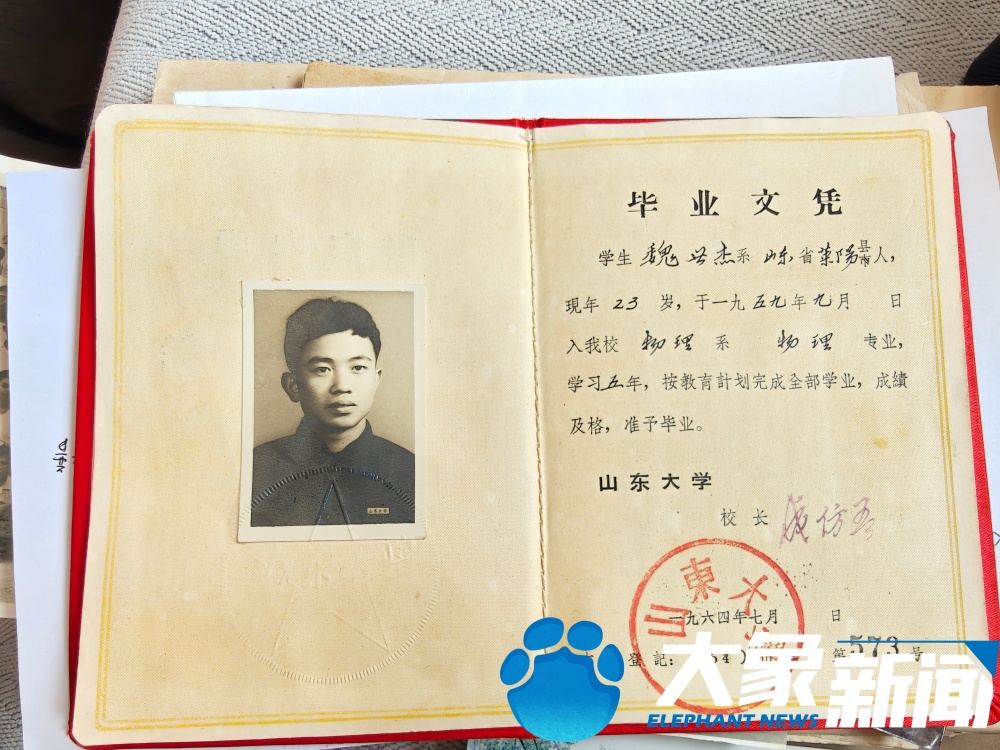 毕业文凭
学生 魏兴杰 系 山东 省 莱阳 县市 人,
现年 23 岁, 于一九五九年九月 日
入我校 物理 系 物理 专业,
学习五年, 按教育計划完成全部学业, 成績
及格, 准予毕业。
山东大学
校长 成仿吾
山東大
一九六四年七月 日
登記: 64) 第573号
山东大学
大象新闻
ELEPHANT NEWS